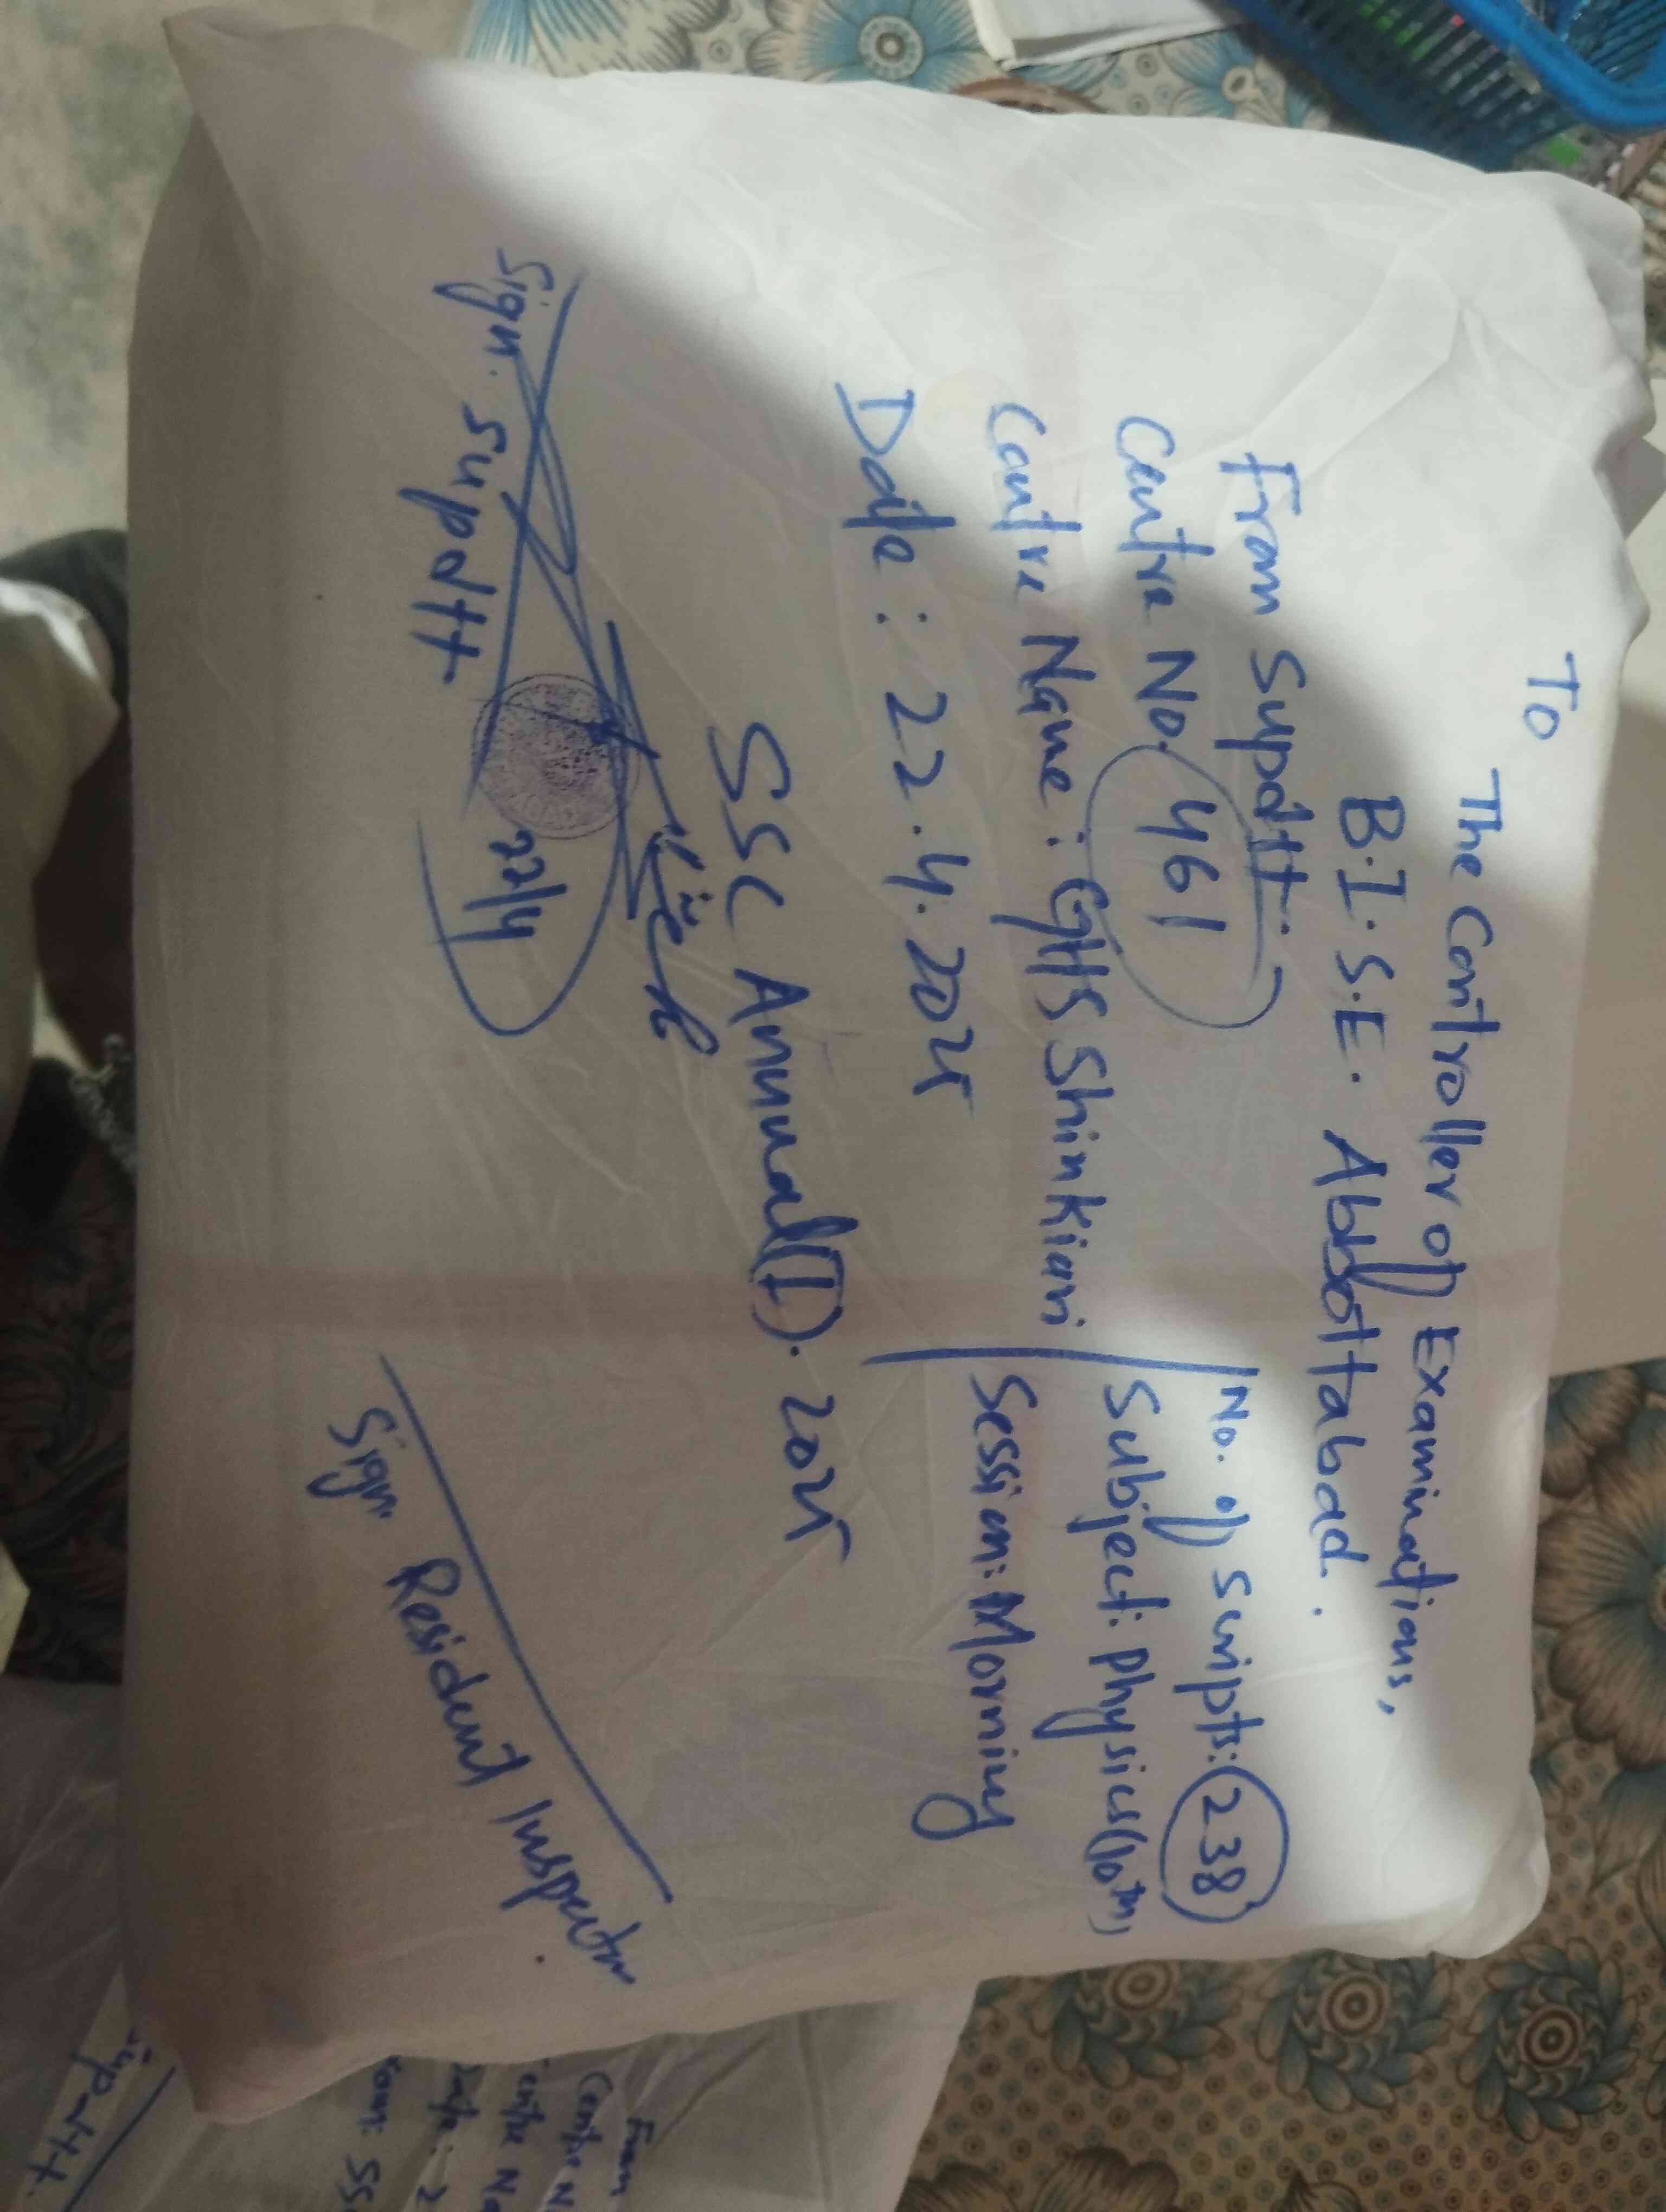 To
The Controller of Examinations,
B.I.S.E. Abbottabad.
From Supdtt:
No. of Scripts: 238
Centre No. 461
Subject: Physics(10th)
Centre Name: GHS Shinkiari
Session: Morning
Date: 22.4.2025
SSC Annual(I). 2025
22/4
Sign. Supdtt
Sign. Resident Inspector
From
Centre N
Centre Na
Date: 2
SS
Supdtt.